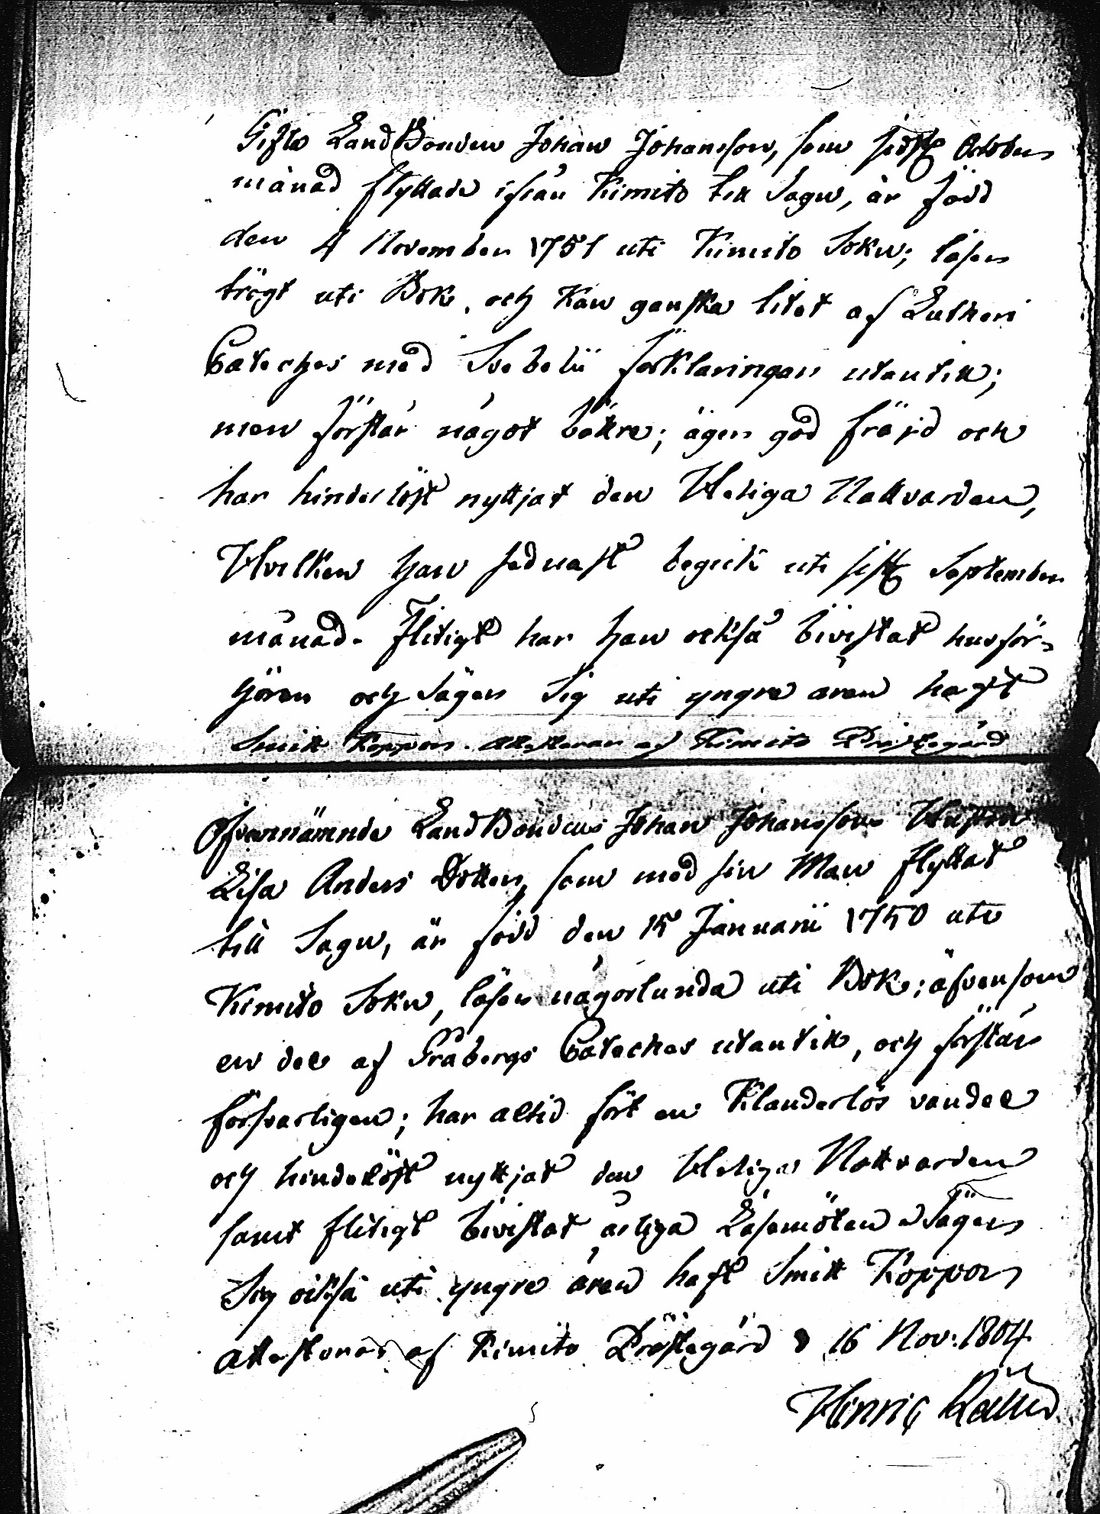 Gifte LandBonden Johan Johansson, som sidstl October
månad flyttade ifrån Kimito till Sagu, är född
den 4 November 1751 uti Kimito Sokn; läser
trögt uti Bok, och kan ganska litet af Lutheri
Cateches med Svebelii förklaringar utantill;
men förstår något bättre; äger god fräjd och
har hinderlöst nyttjat den Heliga Nattvarden,
Hvilken han sednast begick uti sistl September
månad. Flitigt har han också bivistat husför-
hören och säger sig uti yngre åren haft
Smitt Koppor. Attesteras af Kimito Prästegård
Ofvannämnde LandBondens Johan Johanssons Hustru
Lisa Anders Dotter, som med sin Man flyttat
till Sagu, är född den 15 Januarii 1750 uti
Kimito Sokn, läser någorlunda uti Bok; äfvensom
en del af Gråbergs Cateches utantill, och förstår
försvarligen; har altid fört en Klanderlös vandel
och hinderlöst nyttjat den Heliga Nattvarden
samt flitigt bivistat årliga Läsemöten Säger
Sig också uti yngre åren haft Smitt Koppor
attesteras af Kimito Prästegård d 16 Nov. 1804
Henric